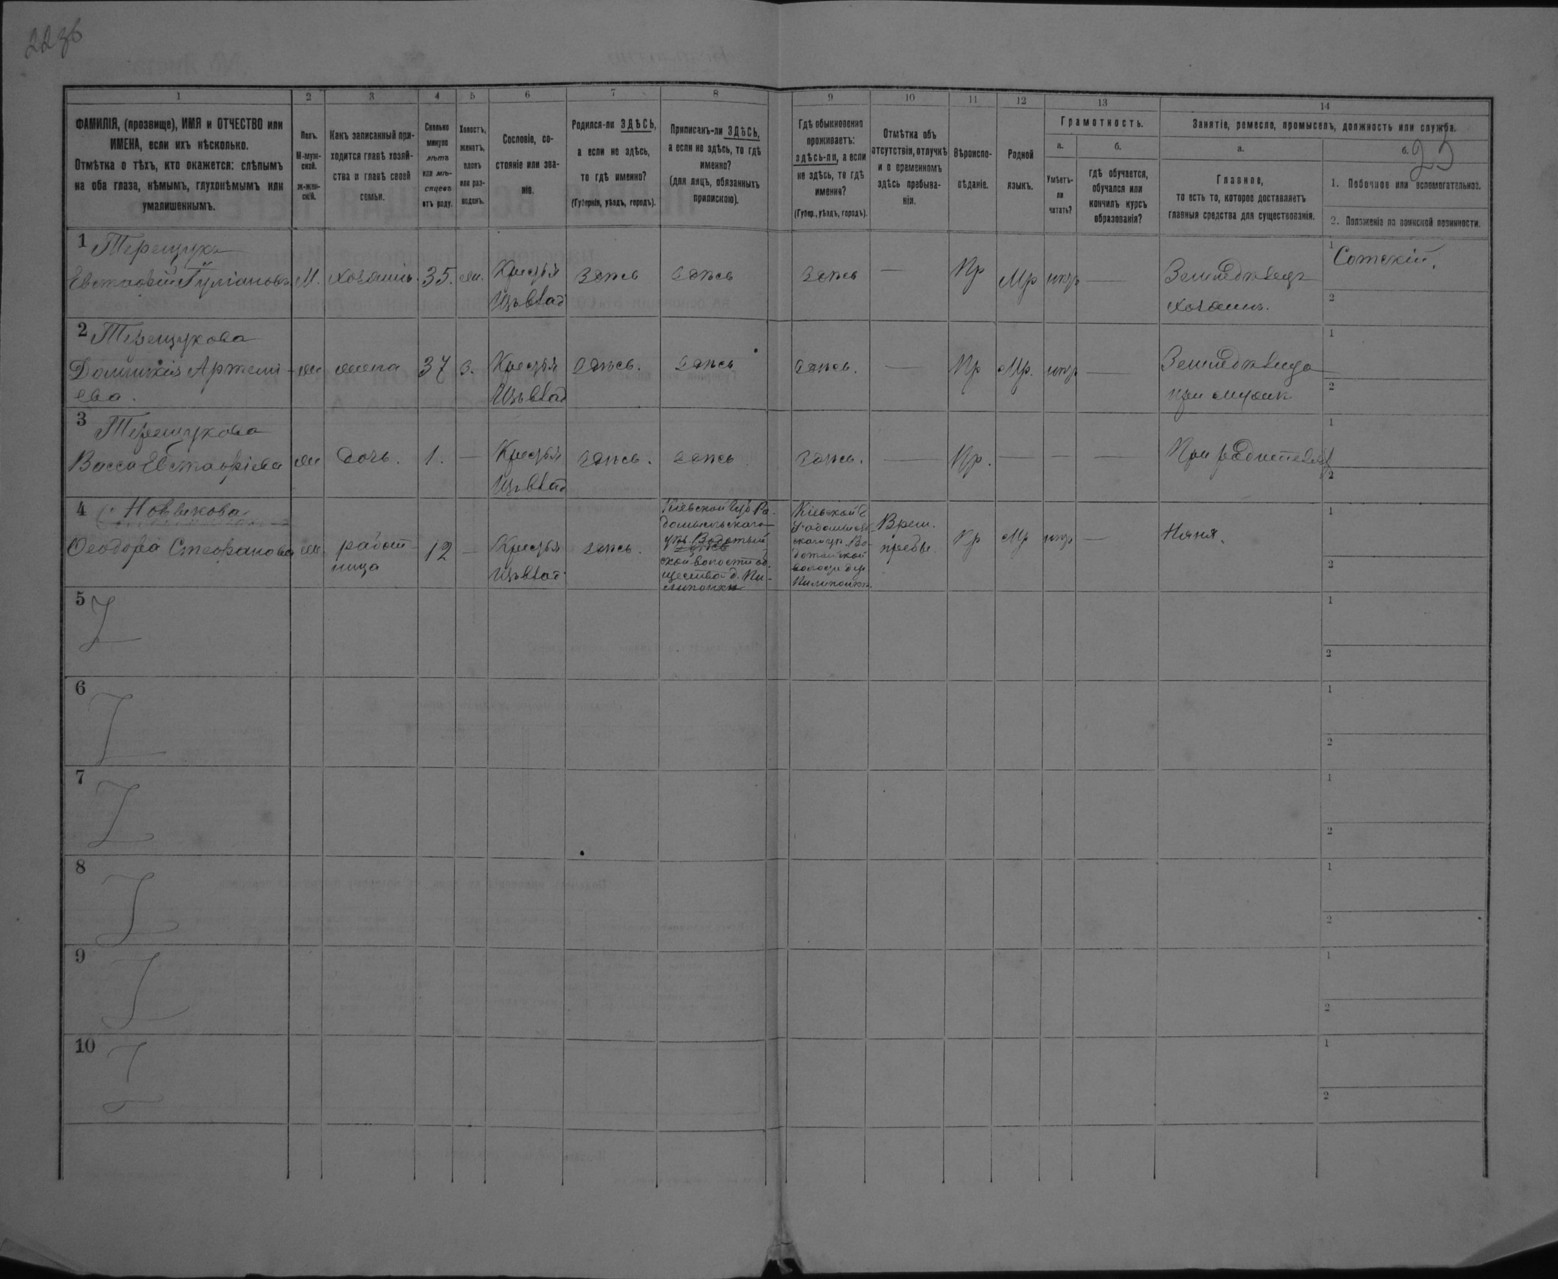 1
2
3
4
5
6
7
8
9
10
11
12
13
14
ФАМИЛІЯ, (прозвище), ИМЯ и ОТЧЕСТВО или
ИМЕНА, если ихъ нѣсколько.
Отмѣтка о тѣхъ, кто окажется: слѣпымъ
на оба глаза, нѣмымъ, глухонѣмымъ или
умалишеннымъ.
Полъ.
М-муж-
ской.
Ж-жен-
скій.
Какъ записанный при-
ходится главѣ хозяй-
ства и главѣ своей
семьи.
Сколько
минуло
лѣтъ
или мѣ-
сяцевъ
отъ роду.
Холостъ,
женатъ,
вдовъ
или раз-
веденъ.
Сословіе, со-
стояніе или зва-
ніе.
Родился-ли ЗДѢСЬ,
а если не здѣсь,
то гдѣ именно?
(Губернія, уѣздъ, городъ).
Приписанъ-ли ЗДѢСЬ,
а если не здѣсь, то гдѣ
именно?
(для лицъ, обязанныхъ
припискою).
Гдѣ обыкновенно
проживаетъ:
здѣсь-ли, а если
не здѣсь, то гдѣ
именно?
(Губер., уѣздъ, городъ).
Отмѣтка объ
отсутствіи, отлучкѣ
и о временномъ
здѣсь пребыва-
ніи.
Вѣроиспо-
вѣданіе.
Родной
языкъ.
Грамотность.
а.
Умѣетъ-
ли
читать?
б.
Гдѣ обучается,
обучался или
кончилъ курсъ
образованія?
Занятіе, ремесло, промыселъ, должность или служба.
а.
Главное,
то есть то, которое доставляетъ
главныя средства для существованія.
1. Побочное или вспомогательное.
2. Положеніе по воинской повинности.
1 Терещукъ
Евстафій Іуліановъ М. хозяинъ 35. жен. Крестья здѣсь здѣсь здѣсь — Пр Мр нгр — Земледѣлецъ
хозяинъ.
1 Сотскій.
2
2 Терещукова
Домникія Артемі жен жена 37 з. Крестья здѣсь. здѣсь здѣсь. — Пр Мр. нгр — Земледѣлица
ева. при мужѣ
1
2
3 Терещукова
Васса Евстафіева жен дочь. 1. — Крестья здѣсь. здѣсь здѣсь. — Пр. — — — При родителяхъ
1
2
4 Новикова
Ѳеодора Стефанова жен работ 12 — Крестья здѣсь.
ница
Кіевской губ Ра-
домысльскаго
Врем.
пребы.
Пр Мр нгр — Няня.
1
2
5
1
2
6
1
2
7
1
2
8
1
2
9
1
2
10
1
2